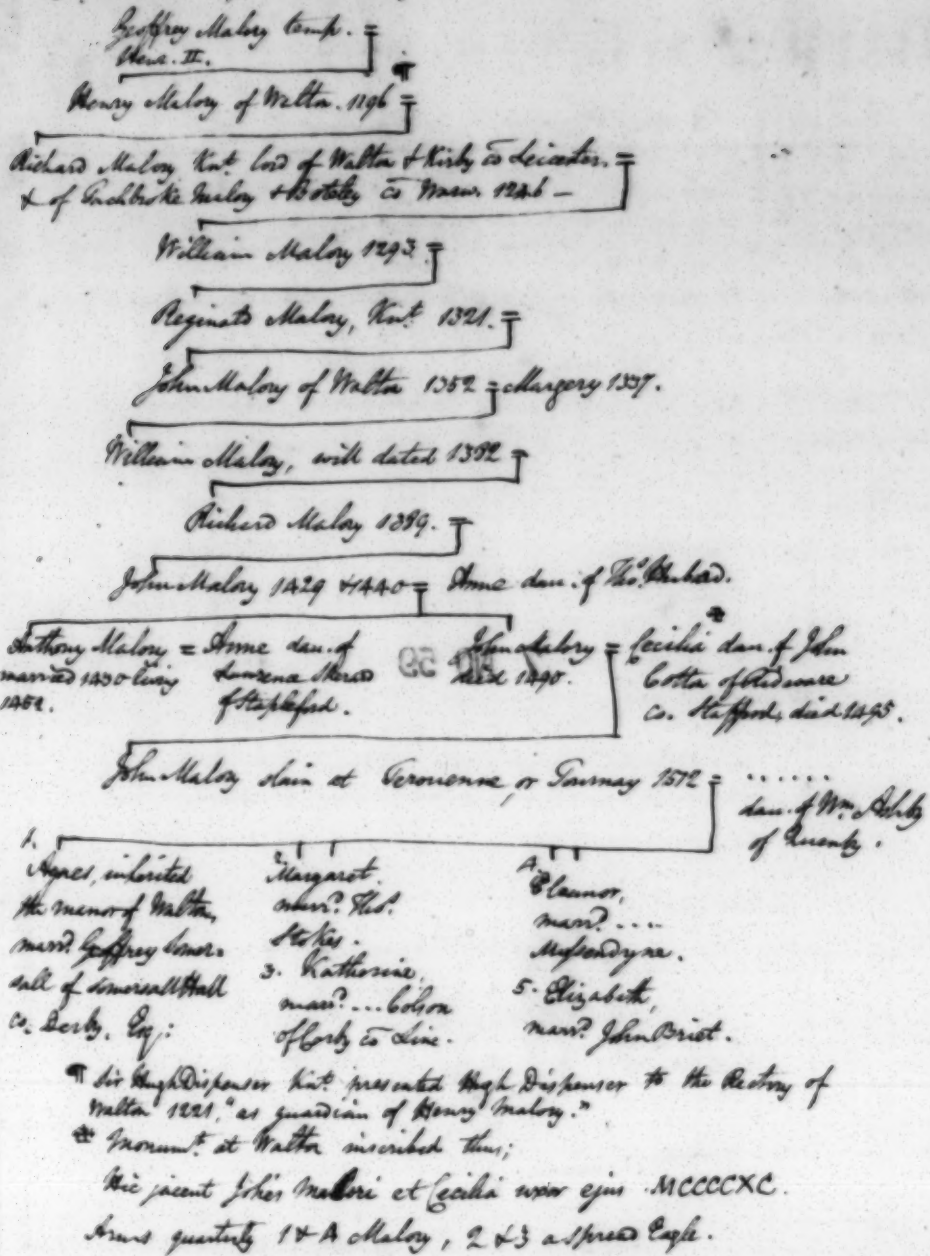 Geoffrey Malory temp. =
Henr. II.
Henry Malory of Walton. 1296 = ¶
Richard Malory Knt. lord of Walton & Kirby co Leicester. =
& of Tachbroke Malory & Boteley co Warw. 1246 —
William Malory 1293. =
Reginald Malory, Knt. 1321. =
John Malory of Walton 1352 = Margery 1337.
William Malory, will dated 1382 =
Richard Malory 1389. =
John Malory 1429 & 1440 = Anne dau. of Thos.
Anthony Malory = Anne dau. of
married 1430 living Lawrence
1452. of Stapleford.
John Malory = Cecilia dau. of John *
died 1490. Cotta of Ridware
co. Stafford, died 1495.
John Malory slain at Terouenne, or Tournay 1512 = ......
dau. of Wm. Ashby
of Quenby.
1.
Agnes, inherited
the manor of Walton,
marrd. Geoffrey Somer-
sall of Somersall Hall
co. Derby, Esq:
2.
Margaret.
marrd. Thos.
Stokes.
3. Katherine,
marrd. .... Colson
of Corby co Linc.
4.
Eleanor,
marrd. ....
Mussendyne.
5. Elizabeth,
marrd. John Briet.
¶ Sir Hugh Dispenser Knt. presented Hugh Dispenser to the Rectory of
Walton 1221, "as guardian of Henry Malory."
* Monumt. at Walton inscribed thus;
Hic jacent Johes Malori et Cecilia uxor ejus MCCCCXC.
Arms quarterly 1 & 4 Malory, 2 & 3 a spread Eagle.